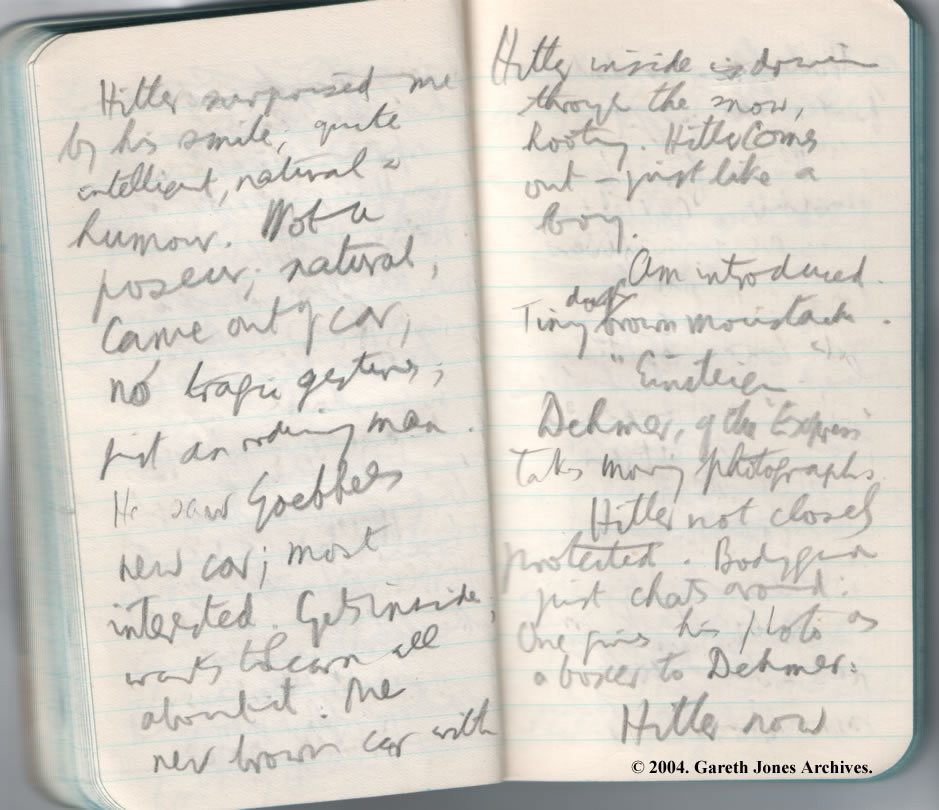 Hitler surprised me
by his smile; quite
intelligent, natural &
humour. Not a
poseur; natural,
Came out of car;
no tragic gestures;
just an ordinary man.
He saw Goebbels
new car; most
interested. Gets inside,
wants to learn all
about it. The
new brown car with
Hitler inside is driven
through the snow,
hooting. Hitler comes
out – just like a
boy.
Am introduced.
dark
Tiny brown moustache.
"Einsteigen"
Dehmer, of the Express
Takes many photographs.
Hitler not closely
protected. Bodyguard
just chats around.
One gives his photo as
a boxer to Dehmer:
Hitler now
© 2004. Gareth Jones Archives.